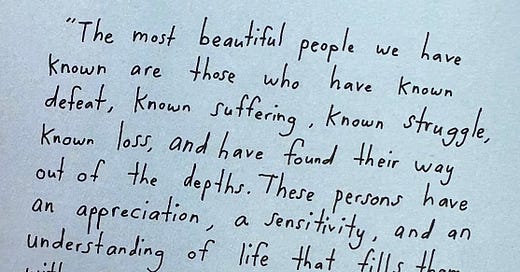 "The most beautiful people we have
known are those who have known
defeat, known suffering, known struggle,
known loss, and have found their way
out of the depths. These persons have
an appreciation, a sensitivity, and an
understanding of life that fills them